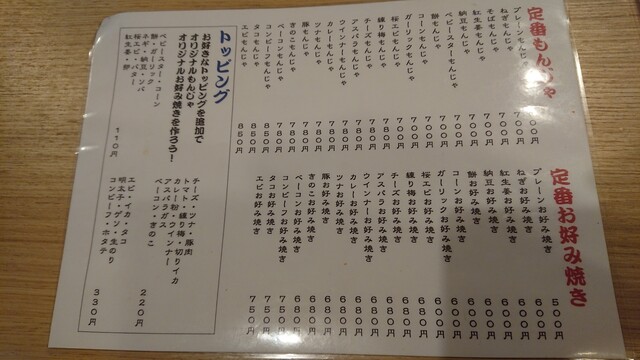 定番もんじゃ
プレーンもんじゃ
ねぎもんじゃ　７００円
そばもんじゃ　７００円
紅生姜もんじゃ　７００円
納豆もんじゃ　７００円
ベビースターもんじゃ　７００円
餅もんじゃ　７００円
コーンもんじゃ　７００円
ガーリックもんじゃ　７００円
桜エビもんじゃ　７００円
練り梅もんじゃ　７８０円
チーズもんじゃ　７８０円
アスパラもんじゃ　７８０円
ウインナーもんじゃ　７８０円
カレーもんじゃ　７８０円
ツナもんじゃ　７８０円
豚もんじゃ　７８０円
きのこもんじゃ　７８０円
ベーコンもんじゃ　７８０円
コンビーフもんじゃ　８５０円
タコもんじゃ　８５０円
エビもんじゃ　８５０円
定番お好み焼き
プレーンお好み焼き　５００円
ねぎお好み焼き　６００円
紅生姜お好み焼き　６００円
納豆お好み焼き　６００円
餅お好み焼き　６００円
コーンお好み焼き　６００円
ガーリックお好み焼き　６００円
桜エビお好み焼き　６００円
練り梅お好み焼き　６８０円
チーズお好み焼き　６８０円
アスパラお好み焼き　６８０円
ウインナーお好み焼き　６８０円
カレーお好み焼き　６８０円
ツナお好み焼き　６８０円
豚お好み焼き　６８０円
きのこお好み焼き　６８０円
ベーコンお好み焼き　６８０円
コンビーフお好み焼き　７５０円
タコお好み焼き　７５０円
エビお好み焼き　７５０円
トッピング
お好きなトッピングを追加で
オリジナルもんじゃ
オリジナルお好み焼きを作ろう！
ベビースター・コーン
餅・ガーリック
ネギ・納豆・ソバ
桜エビ・バター
紅生姜・卵
１１０円
チーズ・ツナ・豚肉
トマト・練り梅・切りイカ
カレー粉・ウインナー
アスパラガス
ベーコン・きのこ
２２０円
エビ・イカ・タコ
明太子・ゲソ・生のり
コンビーフ・ホタテ
３３０円